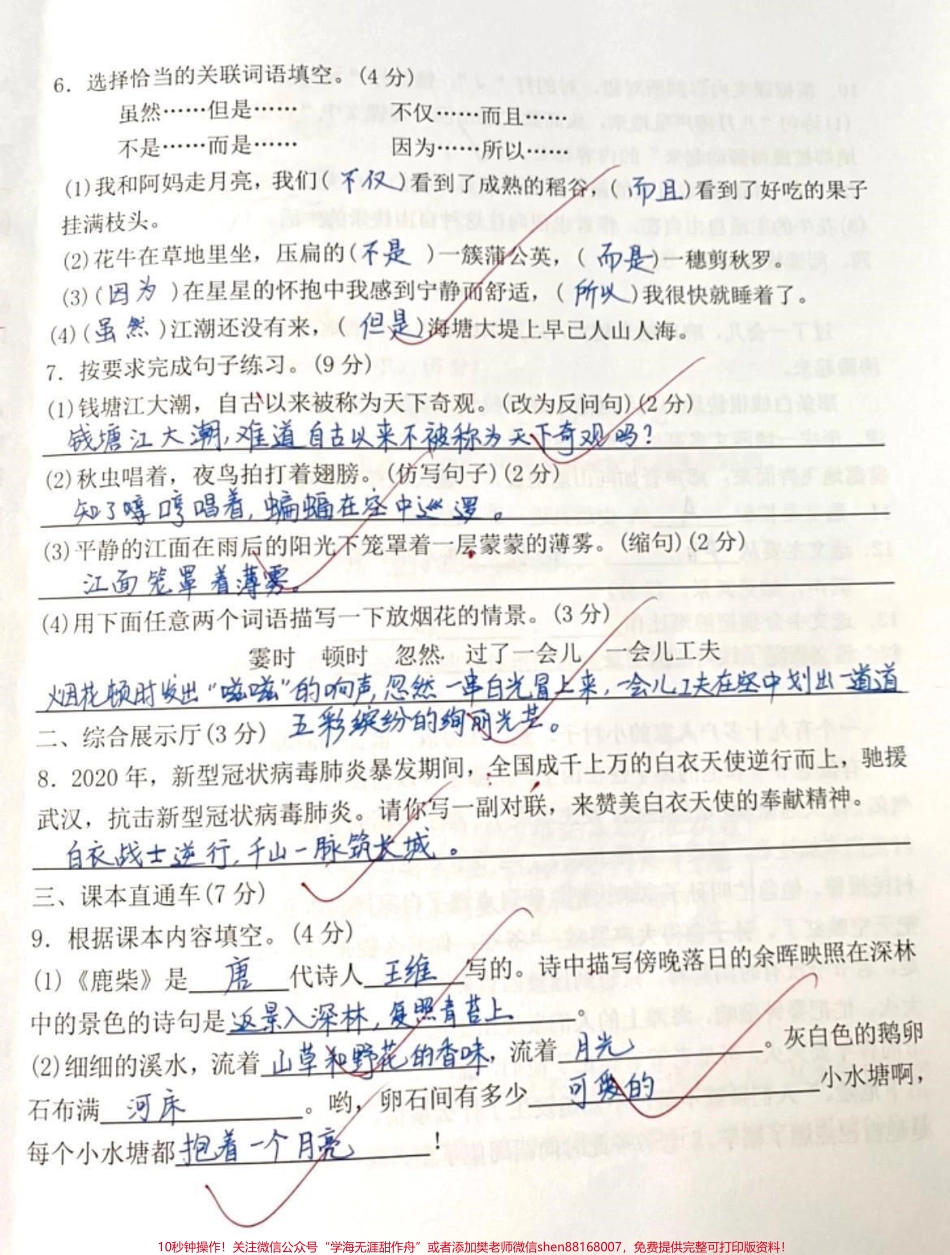 6. 选择恰当的关联词语填空。(4分)
虽然……但是…… 不仅……而且……
不是……而是…… 因为……所以……
(1)我和阿妈走月亮，我们(不仅)看到了成熟的稻谷，(而且)看到了好吃的果子
挂满枝头。
(2)花牛在草地里坐，压扁的(不是)一簇蒲公英，(而是)一穗剪秋罗。
(3)(因为)在星星的怀抱中我感到宁静而舒适，(所以)我很快就睡着了。
(4)(虽然)江潮还没有来，(但是)海塘大堤上早已人山人海。
7. 按要求完成句子练习。(9分)
(1)钱塘江大潮，自古以来被称为天下奇观。(改为反问句)(2分)
钱塘江大潮，难道自古以来不被称为天下奇观吗？
(2)秋虫唱着，夜鸟拍打着翅膀。(仿写句子)(2分)
知了哼哼唱着，蝙蝠在空中巡逻。
(3)平静的江面在雨后的阳光下笼罩着一层蒙蒙的薄雾。(缩句)(2分)
江面笼罩着薄雾。
(4)用下面任意两个词语描写一下放烟花的情景。(3分)
霎时 顿时 忽然 过了一会儿 一会儿工夫
烟花顿时发出“嗞嗞”的响声，忽然一串白光冒上来，一会儿工夫在空中划出一道道
五彩缤纷的绚丽光芒。
二、综合展示厅(3分)
8. 2020年，新型冠状病毒肺炎暴发期间，全国成千上万的白衣天使逆行而上，驰援
武汉，抗击新型冠状病毒肺炎。请你写一副对联，来赞美白衣天使的奉献精神。
白衣战士逆行，千山一脉筑长城。
三、课本直通车(7分)
9. 根据课本内容填空。(4分)
(1)《鹿柴》是 唐 代诗人 王维 写的。诗中描写傍晚落日的余晖映照在深林
中的景色的诗句是 返景入深林，复照青苔上 。
(2)细细的溪水，流着 山草和野花的香味，流着 月光 。灰白色的鹅卵
石布满 河床 。哟，卵石间有多少 可爱的 小水塘啊，
每个小水塘都 抱着一个月亮 ！
10秒钟操作！关注微信公众号“学海无涯甜作舟”或者添加樊老师微信shen88168007，免费提供完整可打印版资料！